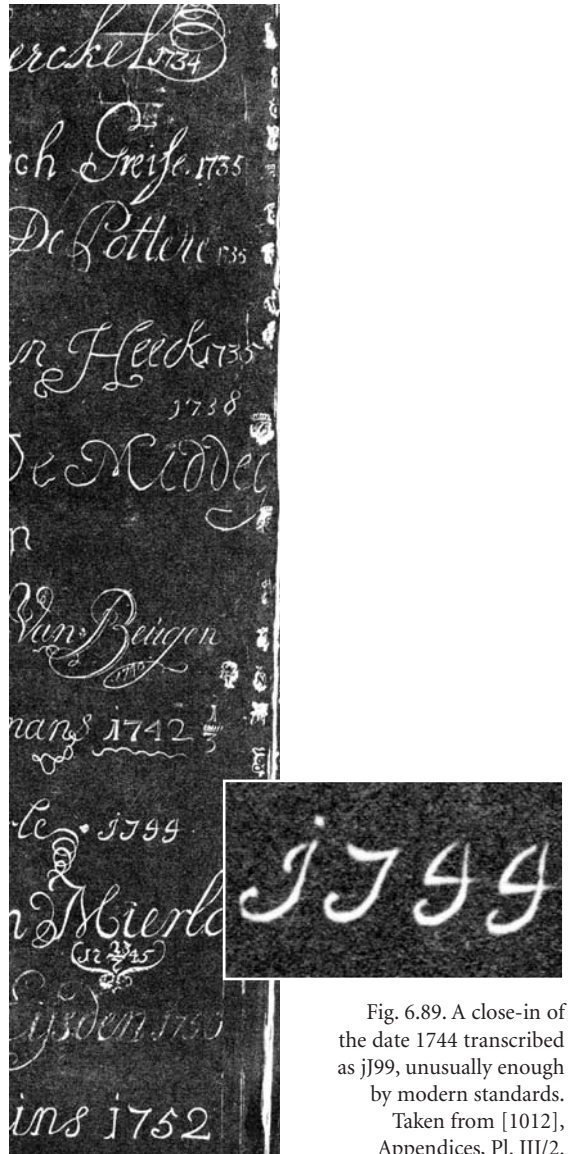 erckel 1734
ich Greife. 1735
De Pottere 1735
n Heeck 1735
1738
De Middel
n
Van Beugen
1740
mans j742 1/3
le · jJ99
n Mierlo
17 23/7 45
Eijsden 1750
ins j752
jJ99
Fig. 6.89. A close-in of
the date 1744 transcribed
as jJ99, unusually enough
by modern standards.
Taken from [1012],
Appendices, Pl. III/2.